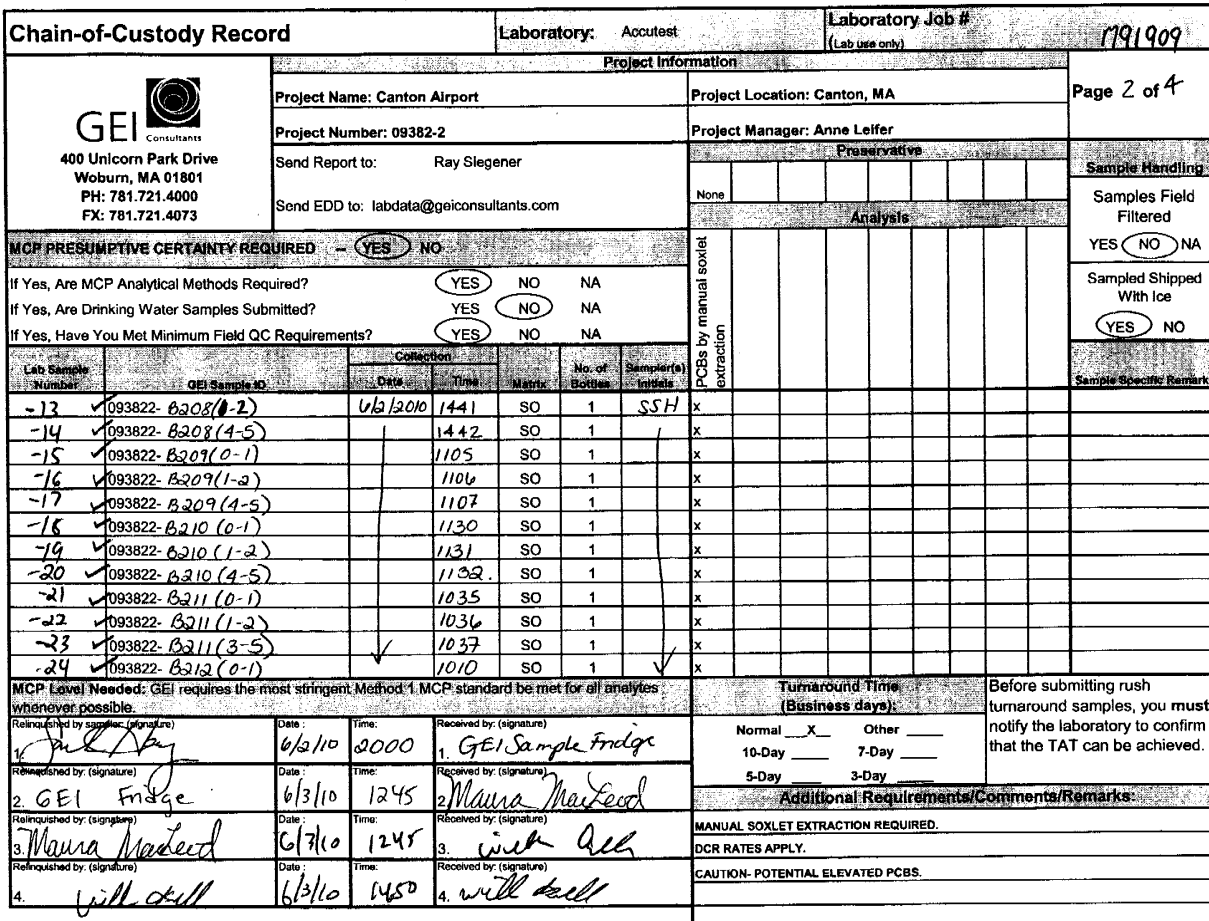 Chain-of-Custody Record
Laboratory: Accutest
Laboratory Job #
(Lab use only)
M91909
Project Information
GEI Consultants
400 Unicorn Park Drive
Woburn, MA 01801
PH: 781.721.4000
FX: 781.721.4073
Project Name: Canton Airport
Project Location: Canton, MA
Page 2 of 4
Project Number: 09382-2
Project Manager: Anne Leifer
Send Report to: Ray Slegener
Send EDD to: labdata@geiconsultants.com
Preservative
None
Analysis
PCBs by manual soxlet extraction
Sample Handling
Samples Field
Filtered
YES NO NA
Sampled Shipped
With Ice
YES NO
MCP PRESUMPTIVE CERTAINTY REQUIRED – YES NO
If Yes, Are MCP Analytical Methods Required? YES NO NA
If Yes, Are Drinking Water Samples Submitted? YES NO NA
If Yes, Have You Met Minimum Field QC Requirements? YES NO NA
Lab Sample Number GEI Sample ID Collection Date Time Matrix No. of Bottles Sampler(s) Initials Sample Specific Remark
-13 ✓ 093822- B208(1-2) 6/2/2010 1441 SO 1 SSH x
-14 ✓ 093822- B208(4-5) 1442 SO 1 x
-15 ✓ 093822- B209(0-1) 1105 SO 1 x
-16 ✓ 093822- B209(1-2) 1106 SO 1 x
-17 ✓ 093822- B209(4-5) 1107 SO 1 x
-18 ✓ 093822- B210 (0-1) 1130 SO 1 x
-19 ✓ 093822- B210 (1-2) 1131 SO 1 x
-20 ✓ 093822- B210 (4-5) 1132. SO 1 x
-21 ✓ 093822- B211 (0-1) 1035 SO 1 x
-22 ✓ 093822- B211 (1-2) 1036 SO 1 x
-23 ✓ 093822- B211 (3-5) 1037 SO 1 x
-24 ✓ 093822- B212 (0-1) 1010 SO 1 x
MCP Level Needed: GEI requires the most stringent Method 1 MCP standard be met for all analytes
whenever possible.
Relinquished by sampler: (signature) Date: Time: Received by: (signature)
1. 6/2/10 2000 1. GEI Sample Fridge
Relinquished by: (signature) Date: Time: Received by: (signature)
2. GEI Fridge 6/3/10 1245 2. Maura MacLeod
Relinquished by: (signature) Date: Time: Received by: (signature)
3. Maura MacLeod 6/3/10 1245 3.
Relinquished by: (signature) Date: Time: Received by: (signature)
4. 6/3/10 1450 4.
Turnaround Time
(Business days):
Normal X Other
10-Day 7-Day
5-Day 3-Day
Before submitting rush
turnaround samples, you must
notify the laboratory to confirm
that the TAT can be achieved.
Additional Requirements/Comments/Remarks:
MANUAL SOXLET EXTRACTION REQUIRED.
DCR RATES APPLY.
CAUTION- POTENTIAL ELEVATED PCBS.